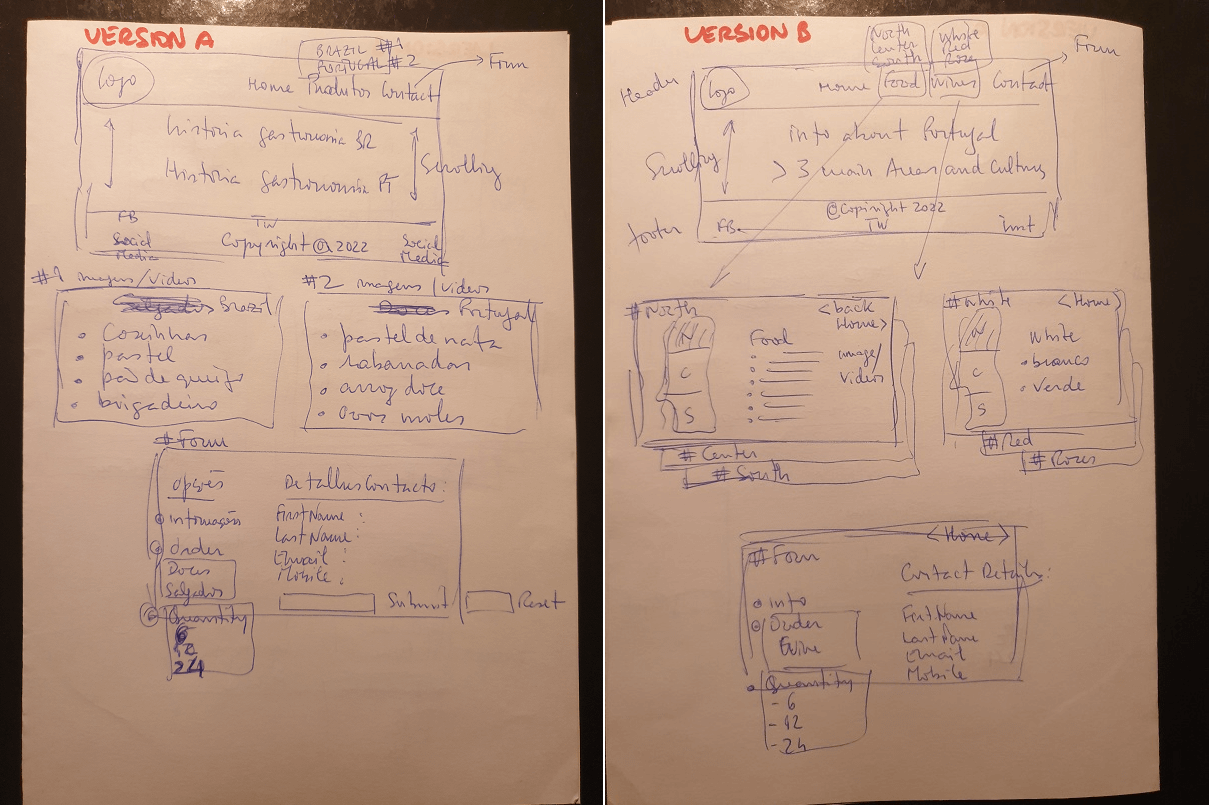 VERSION A
BRAZIL #1
PORTUGAL #2
Form
Logo
Home Produtos Contact
história gastronomia BR
História gastronomia PT
Scrolling
FB
TW
Social Media
Copyright @ 2022
Social Media
#1 imagens/videos
Salgados Brazil
• Coxinhas
• pastel
• pão de queijo
• brigadeiro
#2 imagens/videos
Doces Portugal
• pastel de nata
• rabanadas
• arroz doce
• ovos moles
# Form
opções
Detalhes Contacto:
informações
order
Doces
Salgados
Quantity
6
12
24
First Name :
Last Name :
Email :
Mobile :
Submit
Reset
VERSION B
North
Center
South
White
Red
Rose
Form
Header
Logo
Home Food Wines Contact
Scrolling
info about Portugal
> 3 main Areas and Culture
footer
@Copyright 2022
FB
TW
inst
# North
<back Home>
N
C
S
Food
image/
videos
# Center
# South
# White
<Home>
N
C
S
White
• branco
• verde
# Red
# Roses
<Home>
# Form
Contact Details:
• info
• Order
• Quantity
- 6
- 12
- 24
First Name
Last Name
Email
Mobile